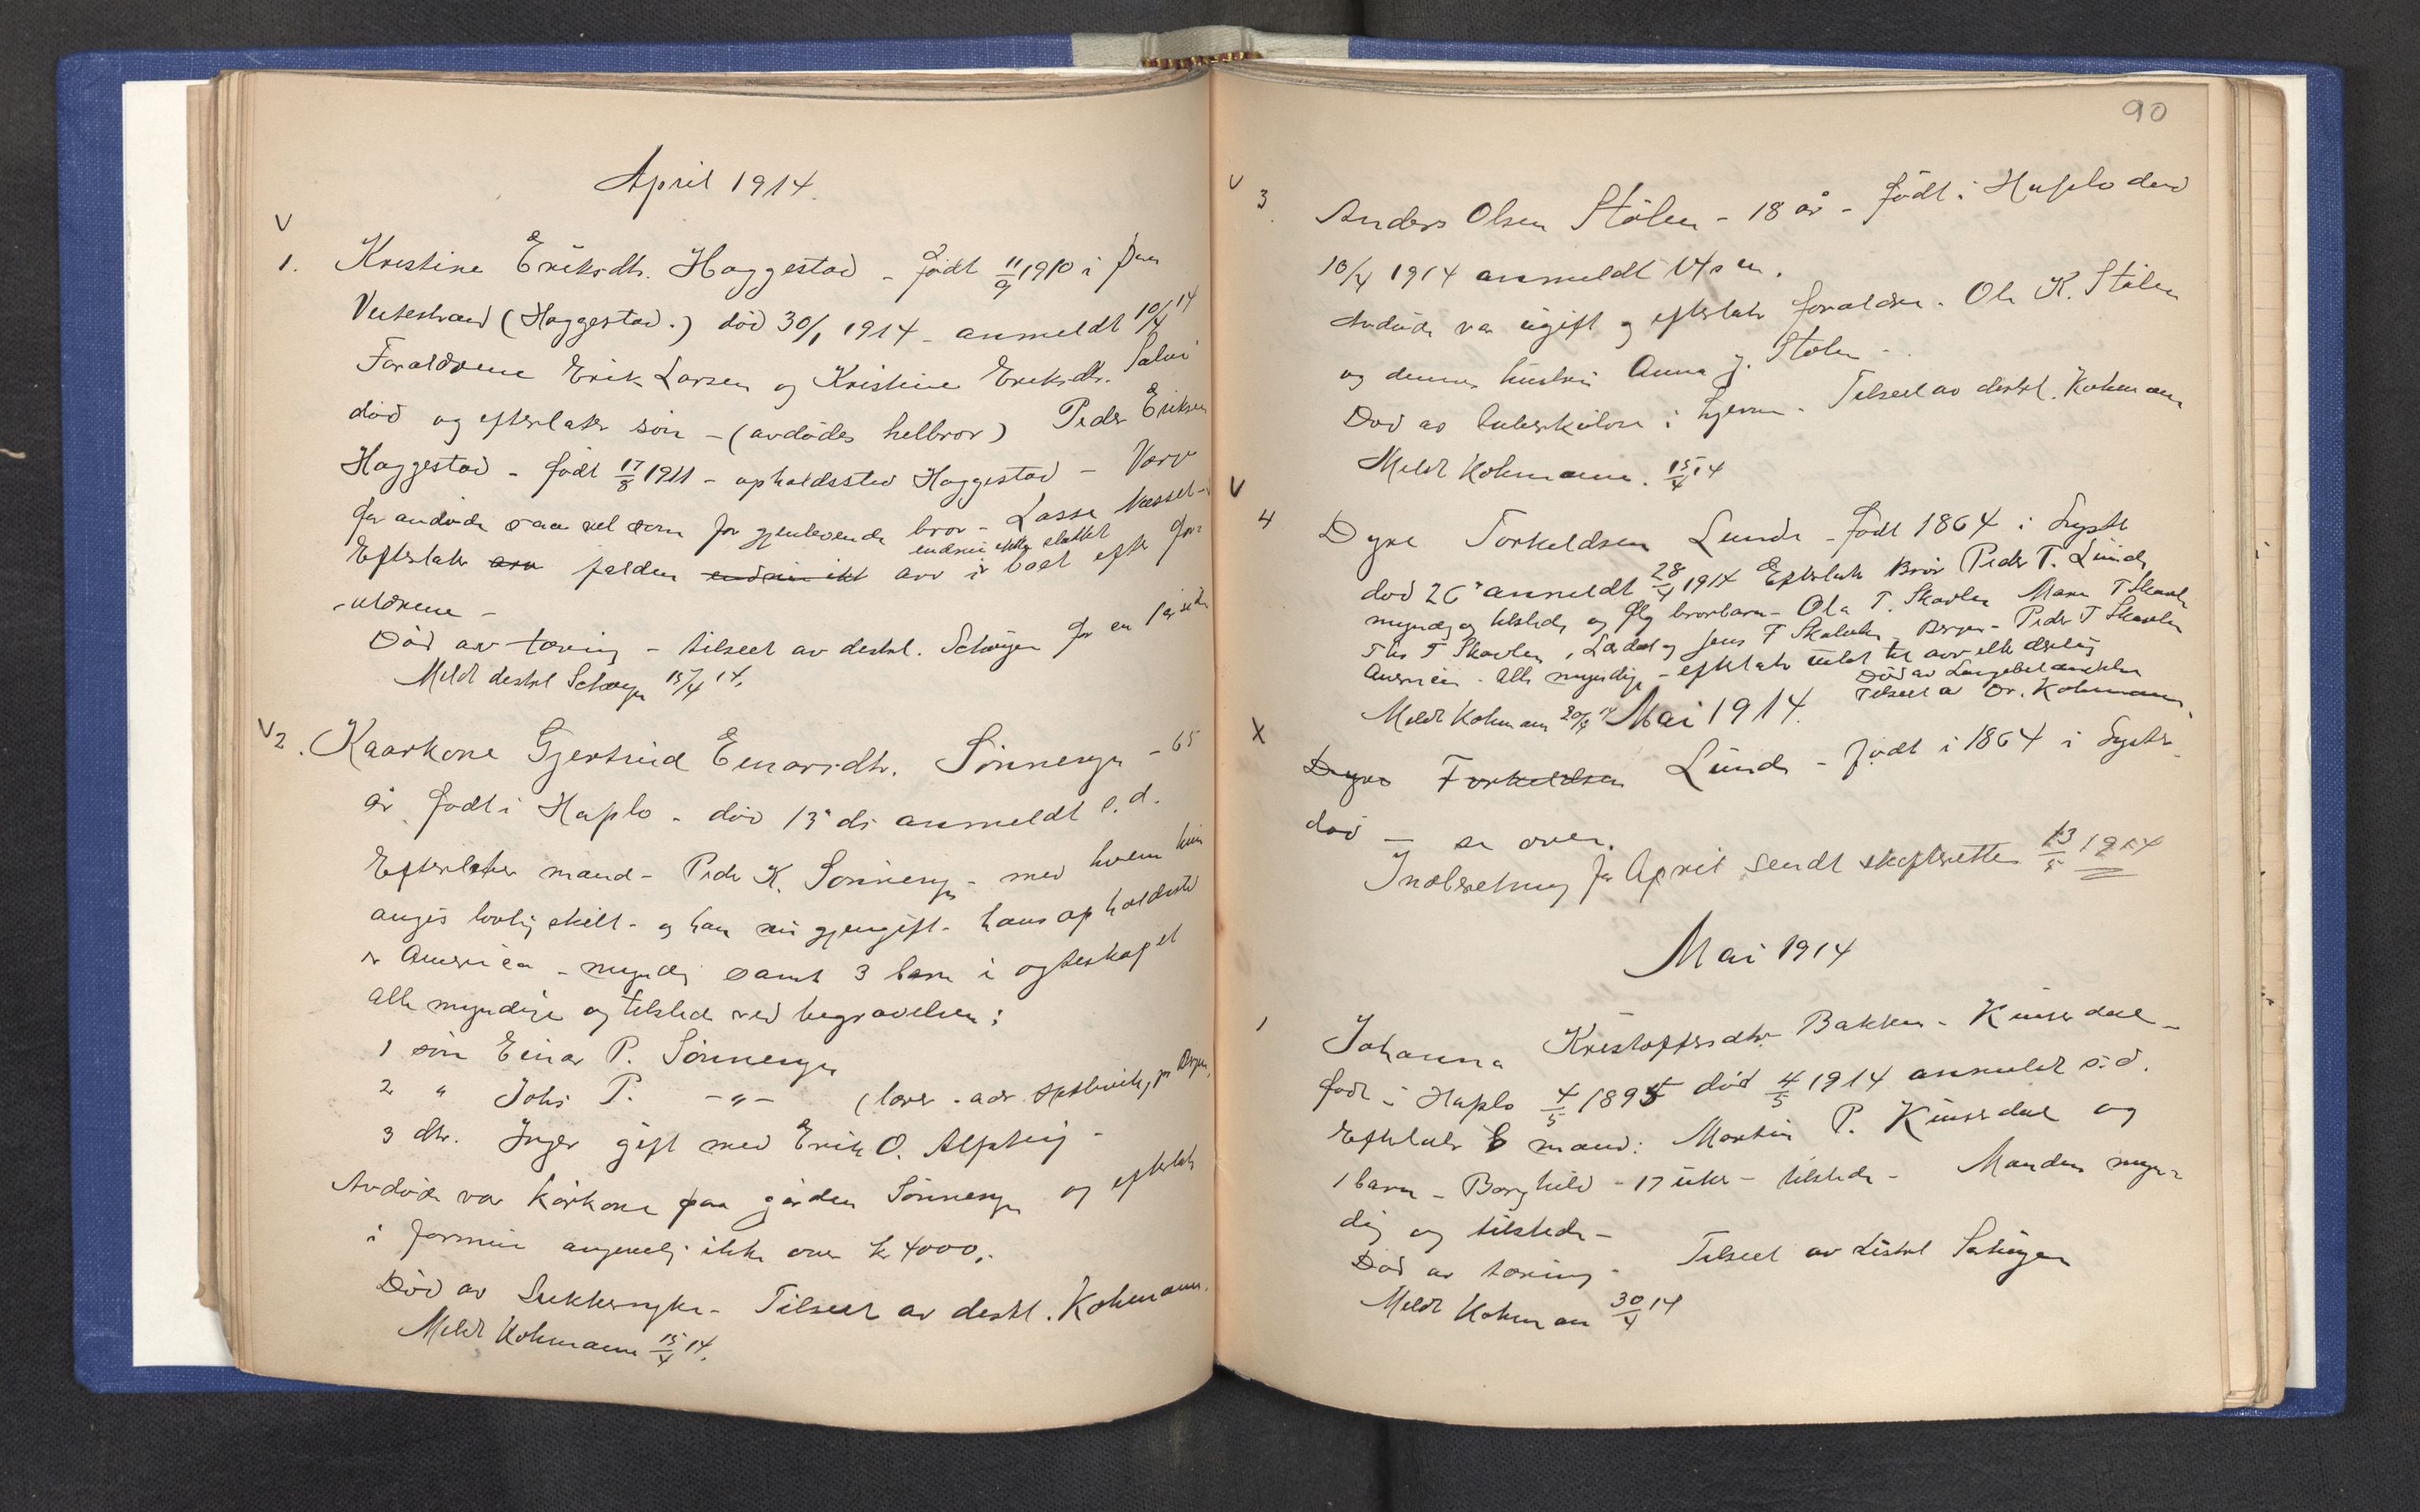 April 1914.
V
1. Kristine Eriksdtr. Haggestad - født 11/9 1910 i
Veitestrand (Haggestad.) død 30/1 1914 - anmeldt 10/4 14
Forældrene Erik Larsen og Kristine Eriksdtr.
død og efterlater søn - (avdødes helbror) Peder Eriksen
Haggestad - født 17/8 1911 - opholdssted Haggestad -
for avdøde saa vel som for gjenlevende bror - Lasse
endnu ikke sluttet
Efterlater arv fælden endnu ikke arv i boet efter for-
ældrene -
Død av tæring - tilseet av distrl. Schøyen for en
Meldt distrl Schøyen 15/4 14.
V 2. Kaarkone Gjertrud Einarsdtr. Sønneseyn - 65
år født i Hafslo - død 13 ds anmeldt s.d.
Efterlater mand - Peder K. Sønneseyn - med hvem hun
angis lovlig skilt - og han nu gjengift - hans opholdssted
er Amerika - myndig samt 3 barn i egteskapet
alle myndige og tilstede ved begravelsen:
1 søn Einar P. Sønneseyn
2 " Johs P. -"- (lærer - adr. pr Bergen,
3 dtr. Inger gift med Erik O. Alsmo
Avdøde var kårkone paa gården Sønneseyn og efterlot
i formue angivelig ikke over kr 4000,-
Død av Sukkersyke - Tilseet av distrl. Kohmann.
Meldt Kohmann 15/4 14.
90
V
3. Anders Olsen Stölen - 18 år - født i Hafslo død
10/4 1914 anmeldt 14 s m.
Avdøde var ugift og efterlater forældre - Ole K. Stölen
og dennes hustru Anna J. Stölen -
Død av tuberkulose i hjernen - Tilseet av distrl. Kohmann
Meldt Kohmann. 15/4 14
V
4 Dyre Torkeldsen Lunde - født 1864 i Lyster
død 26 anmeldt 28/4 1914 Efterlater Bror Peder T. Lunde
myndig og tilstede og flg brorbarn - Ola T. Skavlen T Skavlen
T Skavlen, Lærdal og Jens T Skavlen, Bergen - Peder T Skavlen
Amerika - alle myndige - efterlater intet til arv eller deling
Død av Lungebetændelse
Tilseet a Dr. Kohmann.
Meldt Kohmann 30/4 14 Mai 1914.
X
Dyre Torkeldsen Lunde - født i 1864 i Lyster
død - se over.
Indberetning for April sendt skifteretten 13/5 1914
Mai 1914
1 Johanna Kristoffersdtr Bakken - Kinserdal -
født i Hafslo 4/5 1895 død 4/5 1914 anmeldt s.d.
Efterlater mand: Martin P. Kinserdal og
1 barn - Borghild - 17 uker - tilstede - Manden myn-
dig og tilstede -
Død av tæring - Tilseet av distrl Schøyen
Meldt Kohmann 30/4 14